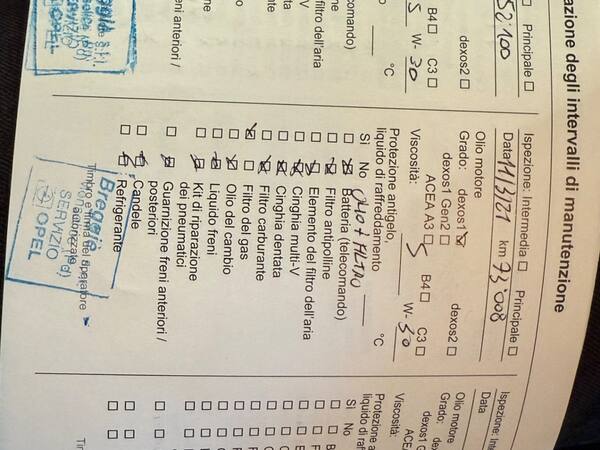 azione degli intervalli di manutenzione
Principale ☐
52'100
dexos2 ☐
B4 ☐ C3 ☐
5 W- 30
°C
omando)
filtro dell'aria
eni anteriori /
SERVIZIO
OPEL
Ispezione: Intermedia ☐ Principale ☐
Data 11/3/21 km 73'008
Olio motore
Grado: dexos1 ☒ dexos2 ☐
dexos1 Gen2 ☐
ACEA A3 ☐ B4 ☐ C3 ☐
Viscosità: 5 W- 30
Protezione antigelo,
liquido di raffreddamento °C
Sì No OLIO + FILTRO
☐ ☒ Batteria (telecomando)
☐ ☒ Filtro antipolline
☐ ☒ Elemento del filtro dell'aria
☐ ☒ Cinghia multi-V
☐ ☒ Cinghia dentata
☐ ☒ Filtro carburante
☒ ☐ Filtro del gas
☐ ☒ Olio del cambio
☐ ☒ Liquido freni
☐ ☒ Kit di riparazione
dei pneumatici
☐ ☒ Guarnizione freni anteriori /
posteriori
☐ ☒ Candele
☐ ☒ Refrigerante
Timbro e firma del riparatore
autorizzato
SERVIZIO
OPEL
Ispezione: Int
Data
Olio motore
Grado: dexos1
dexos1 G
ACE
Viscosità:
Protezione a
liquido di raff
Sì No
☐ ☐ B
☐ ☐ F
☐ ☐ E
☐ ☐
☐ ☐
☐ ☐
☐ ☐
☐ ☐
☐ ☐
☐ ☐
☐ ☐
☐ ☐
☐ ☐
Tim